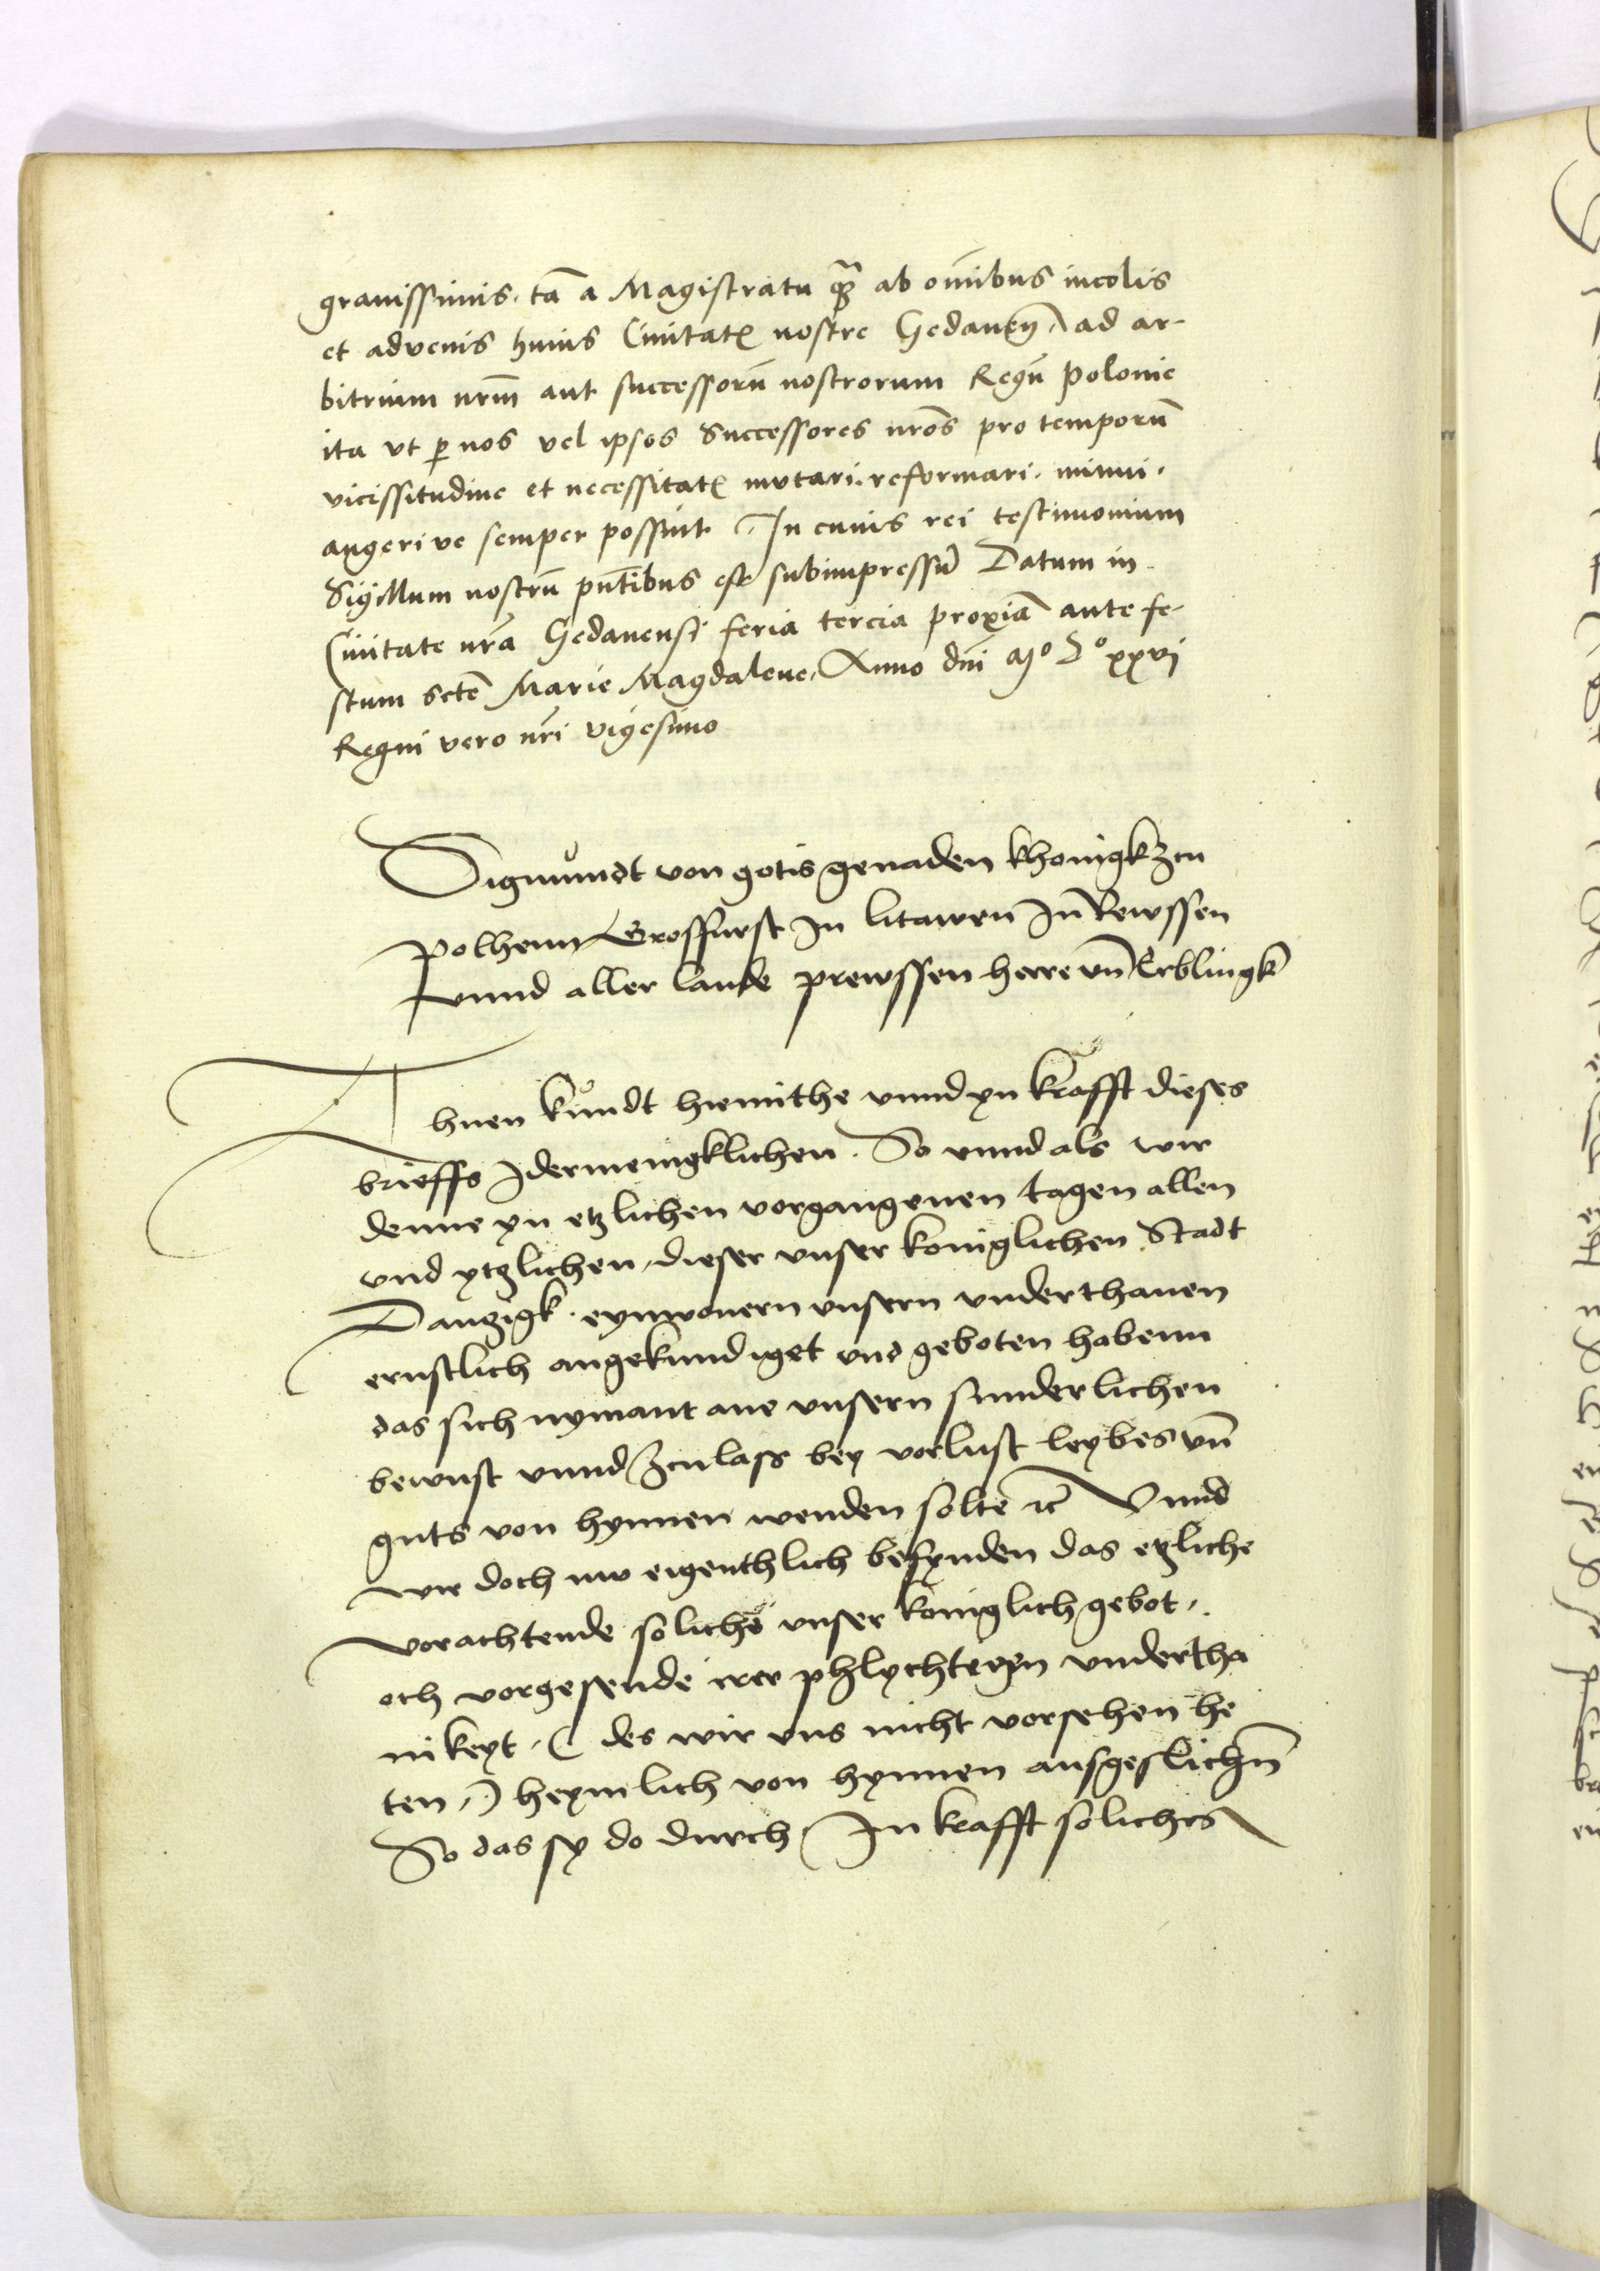 grauissimis. tā a Magistratu qȝ̄ ab om̄ibus incolis
et advenis huius Ciuitatꝭ nostre Gedaneñ ad ar-
bitrium nrm̄ aut successorū nostrorum Regū Polonie
ita vt ꝑ nos vel ipsos Successores nr̄os pro temporū
vicissitudine et necessitatꝭ mvtari. reformari. minui.
augeri ve semper possint. In cuius rei testimonium
Sigillum nostrū pn̄tibus est subimpressū Datum in
Ciuitate nrā Gedanensi feria tercia proxiā ante fe-
stum Sctē Marie Magdalene, Anno dn̄i Mº Dº xxvi
Regni vero nr̄i vigesimo
Sigmůndt von gotis genaden khonigk zcu
Polhenn Grosfurst In litawen In Rewssen
vnnd aller lande prewssen herre vn̄ Erblingk
Thuen kůndt hiemithe vnnd yn krafft dieses
brieffs Idermenigklichen. So vnnd als wir
denne yn etzlichen vorgangenen tagen allen
vnd ytzlichen, dieser vnser koniglichen Stadt
Danzigk. eynwonern vnsern vnderthanen
ernstlich angekundiget vnd geboten habenn
das sich nymant ane vnsern sunderlichen
bewust vnnd zculass bey vorlust leybes vn̄
guts von hynnen wenden solte ꝛc Vnnd
wir doch nw eigenthlich befynden das etzliche
vorachtende soliche vnser koniglich gebot,
och vorgesende irer phlychtegen vndertha
nikeyt, ( des wir vns nicht vorsehen he
ten, ) heymlich von hynnen ausgeslichn̄
So das sy do durch In krafft soliches